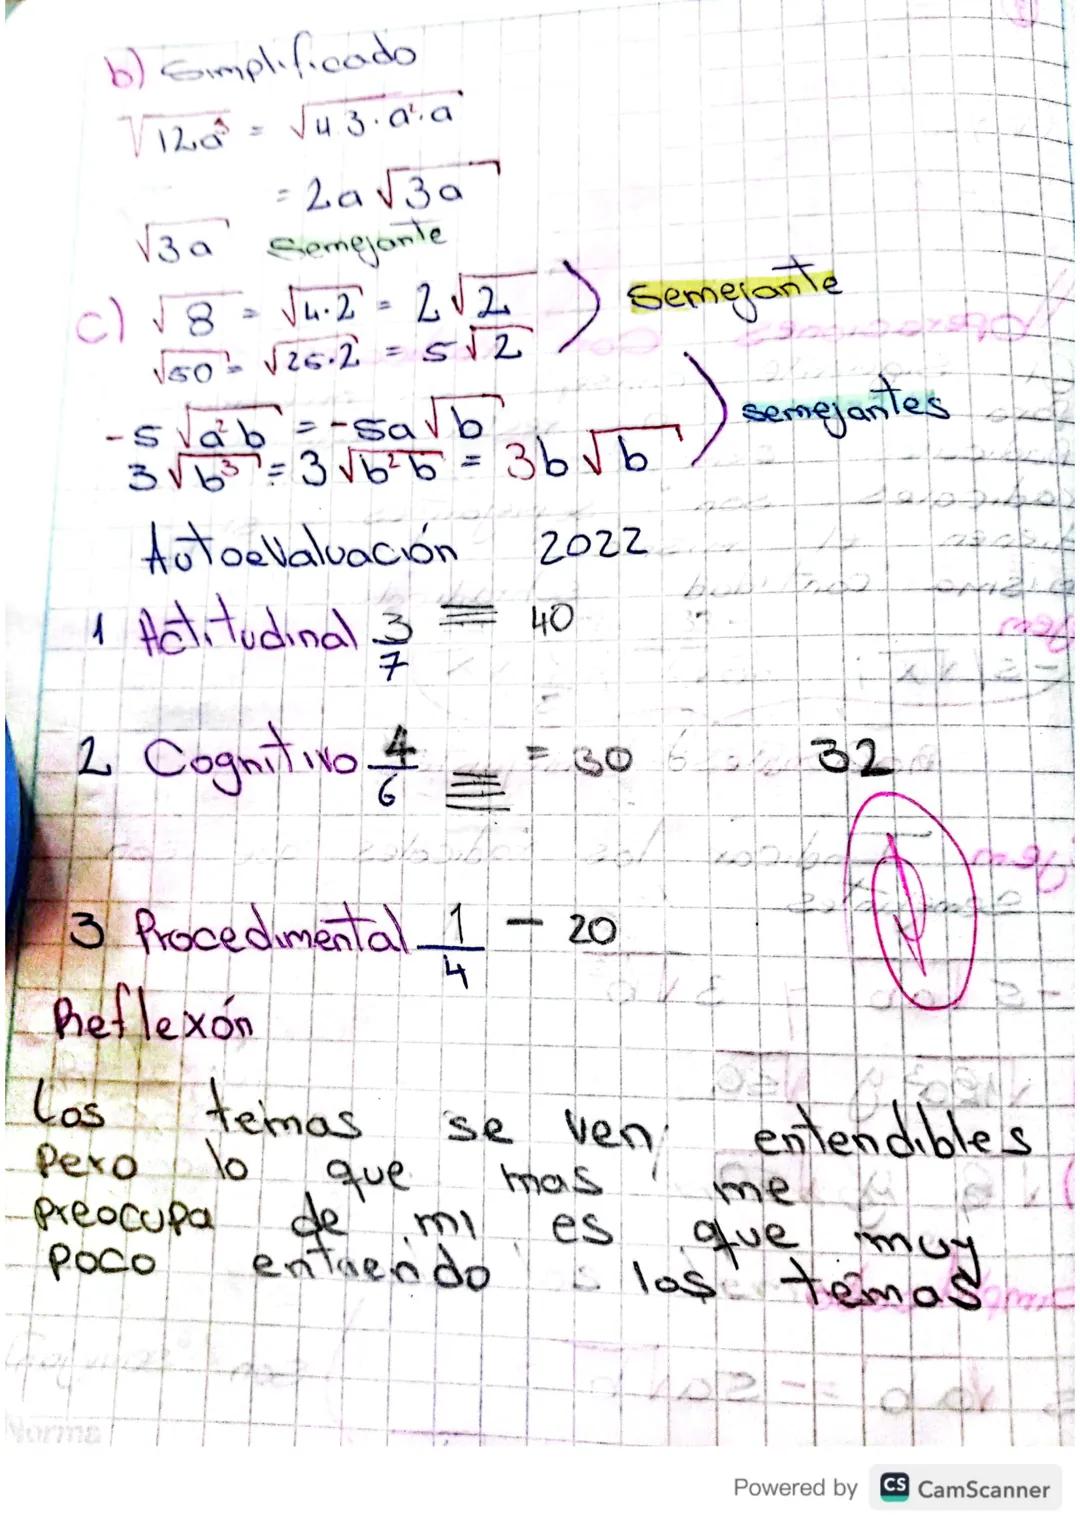 b) Simplificado
√12a³ = √4·3·a²·a
= 2a √3a
√3a Semejante
c) √8 = √4·2 = 2√2 ) Semejante
√50 = √25·2 = 5√2
-5√a²b = -5a√b ) semejantes
3√b³ = 3√b²b = 3b√b
Autoevaluación 2022
1 Actitudinal 3/7 ≡ 40
2 Cognitivo 4/6 = 30 32
3 Procedimental 1/4 - 20
Reflexón
Los temas se ven entendibles
Pero lo que mas me
preocupa de mi es que muy
poco entiendo los temas
Norma
Powered by CS CamScanner